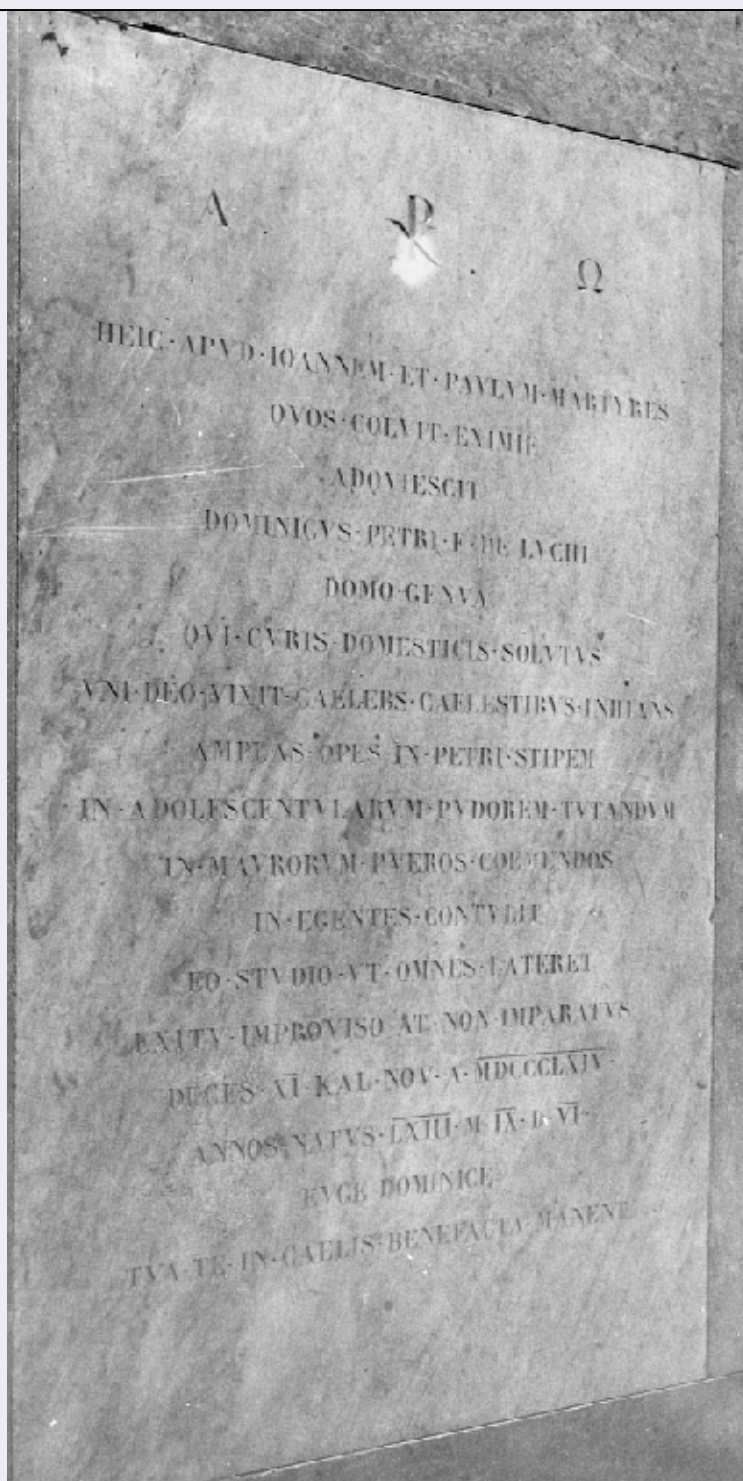 Α ☧ Ω
HEIC · APVD · IOANNEM · ET · PAVLVM · MARTYRES
QVOS · COLVIT · EXIMIE
ADQVIESCIT
DOMINICVS · PETRI · F · DE LVCHI
DOMO · GENVA
QVI · CVRIS · DOMESTICIS · SOLVTVS
VNI · DEO · VIXIT · CAELEBS · CAELESTIBVS · INHIANS
AMPLAS · OPES · IN · PETRI · STIPEM
IN · ADOLESCENTVLARVM · PVDOREM · TVTANDVM
IN · MAVRORVM · PVEROS · COEMENDOS
IN · EGENTES · CONTVLIT
EO · STVDIO · VT · OMNES · LATERET
EXITV · IMPROVISO · AT · NON · IMPARATVS
DECES · XI · KAL · NOV · A · MDCCCLXIV ·
ANNOS · NATVS · LXIII · M · IX · D · VI ·
EVGE DOMINICE
TVA · TE · IN · CAELIS · BENEFACTA · MANENT